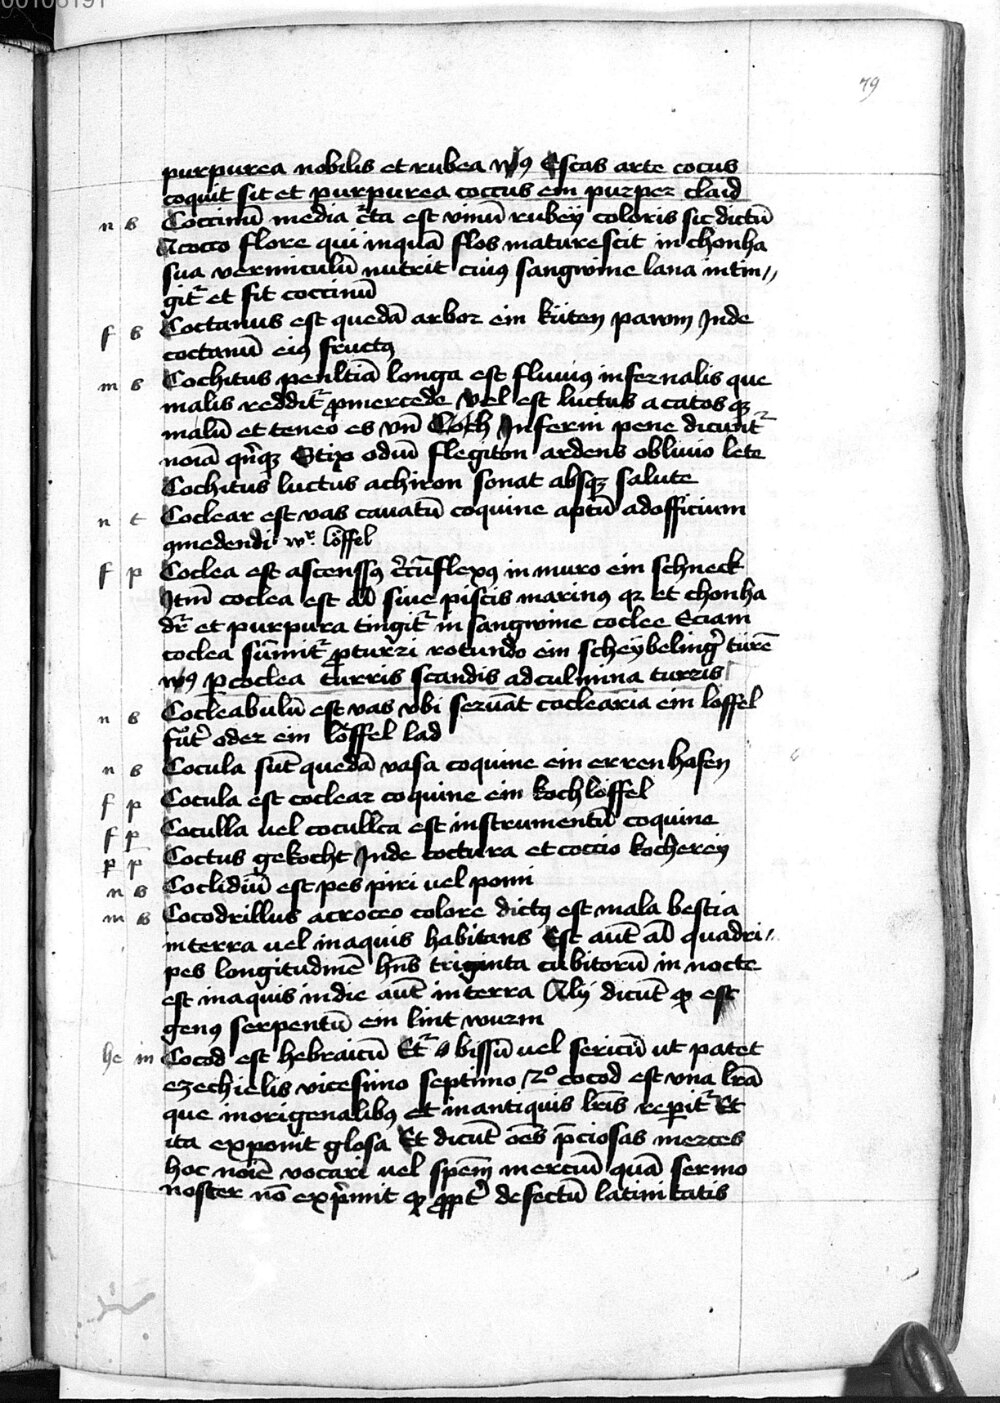 00106191
79
purpurea nobilis et rubea vꝰ Escas arte cocus
coquit sit et purpurea coccus ein purper claid
n s Coccinū media c̄ta est vinū rubeÿ coloris sic dictū
A cocco flore qui inquā flos maturescit in chonha
sua vermiculū nutrit ciuꝰ sangwine lana intin〃
git᷑ et fit coccinū
f s Coctanus est quedā arbor ein kütten pawm Inde
coctanū eiꝰ fructꝰ
m s Cochitus penltiā longa est fluuiꝰ infernalis que
malis reddit᷑ p̄mercede vel est luctus a catos qꝫ
malū et teneo es vn̄ Coch Inferni pene dicunt᷑
noīa qn̄qꝫ Stix odiū flegiton ardens obliuio lete
Cochitus luctus achiron sonat absqꝫ salute
n t Coclear est vas cauatū coquine aptū ad officium
ꝯmedendi wͬ löffel
f p Coclea est ascenssꝰ c̄cūflexꝰ in muro ein schneck
Itm̄ coclea est al̄ siue piscis marinꝰ qꝫ et chonha
dr̄ et purpura tingit᷑ in sangwine coclee Eciam
coclea sūmit᷑ ꝓ turri rotundo ein scheÿbelinger turē
vꝰ ꝑ coclea turris scandis ad culmina turris
n s Cocleabulū est vas vbi seruāt coclearia ein löffel
fůt̄ oder ein löffel lad
n s Cocula sūt quedā vasa coquine ein erren hafen
f p Cocula est coclear coquine ein kochlöffel
f p Coculla uel cocullca est instrumentū coquine
p p Coctus gekocht Inde coctura et coccio kocherey
n s Coclidiū est pes piri uel pomi
m s Cocodrillus a croceo colore dictꝰ est mala bestia
in terra uel in aquis habitans Est aūt al̄ quadri〃
pes longitudinē hn̄s triginta cubitorū in nocte
est in aquis in die aūt in terra Alÿ dicūt ꝙ est
genꝰ serpentū ein lint wurm
he in Cocod est hebraicū Et᷑ s bissū uel sericū ut patet
ezechielis vicesimo septimo 2º cocod est vna lr̄a
que in origenalibꝰ et in antiquis lr̄is reperit᷑ Et
ita exponit glosa Et dicūt oēs p̄ciosas merces
hoc noīe vocari uel spem̄ merciū quā sermo
noster nō exp̄mit ꝙ ꝓpt̄ defectū latinitatis